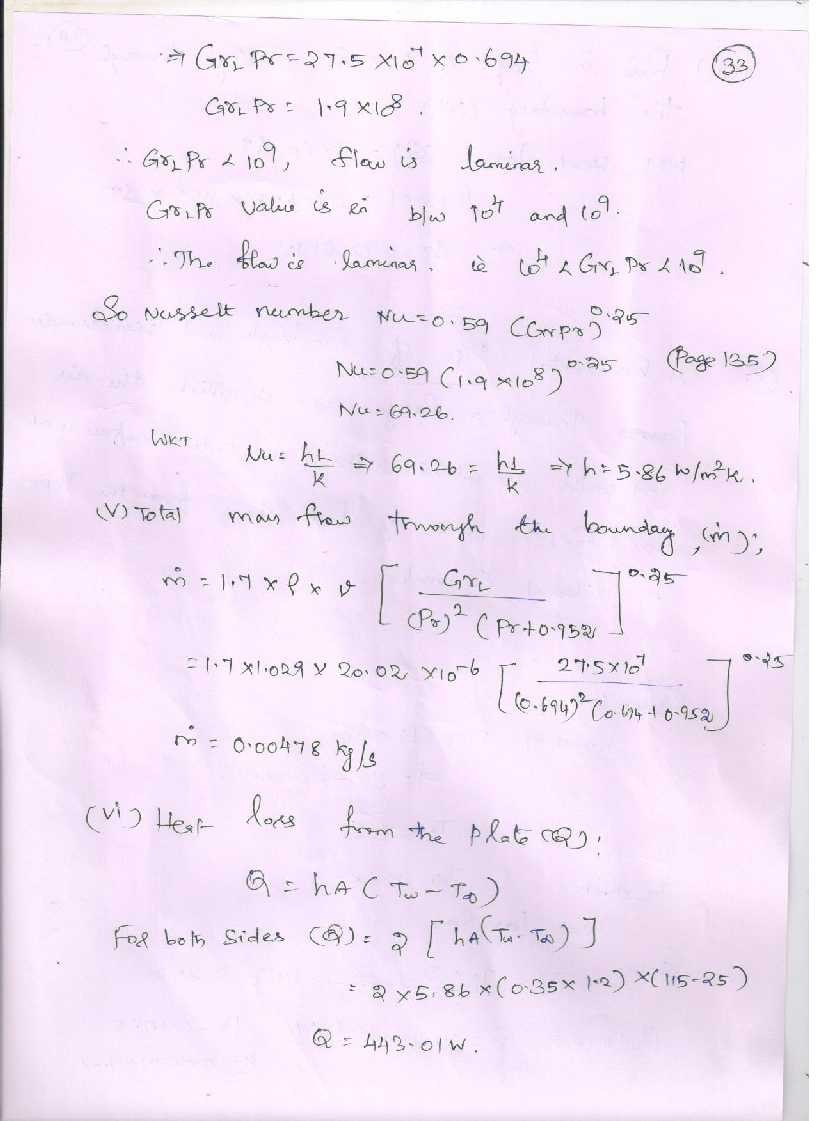 ⇒ GrL Pr = 27.5 ×10⁷ × 0.694
33
GrL Pr = 1.9 ×10⁸.
∴ GrL Pr < 10⁹, flow is laminar.
GrL Pr value is in b/w 10⁴ and 10⁹.
∴ The flow is laminar. ie 10⁴ < GrL Pr < 10⁹.
So Nusselt number Nu = 0.59 (GrPr)^0.25
(Page 135)
Nu = 0.59 (1.9 ×10⁸)^0.25
Nu = 69.26.
WKT Nu = hL/K ⇒ 69.26 = hL/K ⇒ h = 5.86 W/m²K.
(V) Total mass flow through the bounday, (ṁ);
ṁ = 1.7 × ρ × υ [ GrL / (Pr)² (Pr+0.952 ]^0.25
= 1.7 ×1.029 × 20.02 ×10⁻⁶ [ 27.5×10⁷ / (0.694)² (0.694 + 0.952) ]^0.25
ṁ = 0.00478 kg/s
(Vi) Heat loss from the plate (Q):
Q = hA ( Tw – T∞ )
For both Sides (Q) = 2 [ hA(Tw - T∞) ]
= 2 × 5.86 × (0.35 × 1.2) × (115-25)
Q = 443.01W.